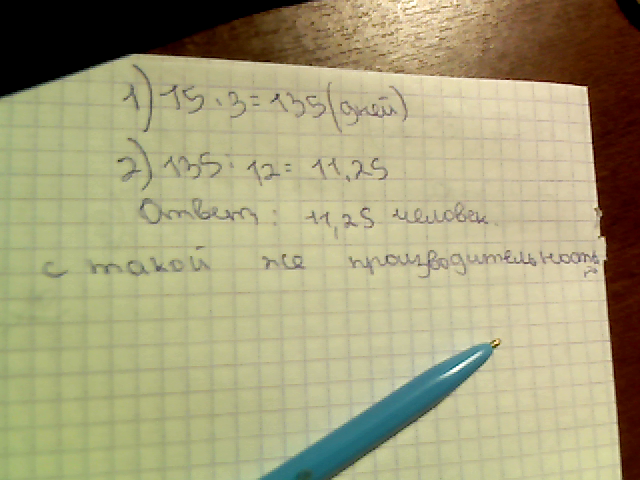 1) 15 · 3 = 135 (дней)
2) 135 : 12 = 11,25
Ответ: 11,25 человек.
с такой же производительность